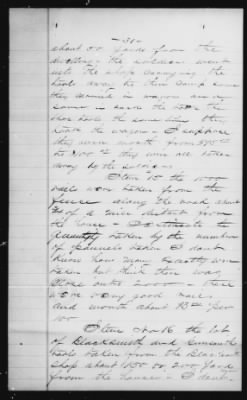 -31-
about 50 yards from the
dwelling - the soldiers went
into the shop carrying the
tools away to their camp some
they carried in wagons and
some - saw the
the same time they
took the wagon - I suppose
they were worth from
to they were all taken
away by the soldiers
Item 15 the 1000
rails were taken from the
fence along the road about
of a mile distant from
the house - I estimate the
quantity taken by the number
of pannels taken I dont
know how many exactly were
taken but think there was
close onto 2000 - there
were very good rails
and worth about per
100
Item No 16 the lot
of Blacksmith and Gunsmith
tools taken from the Blacksmith
Shop about 150 or 200 yards
from the house - I dont